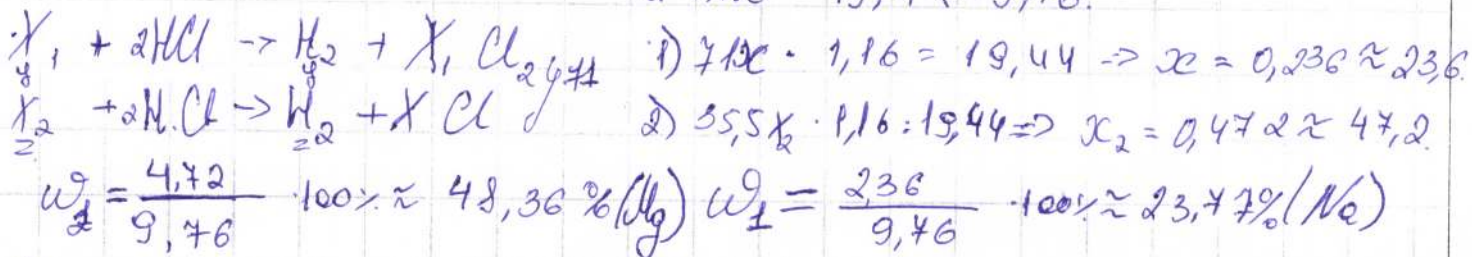 X₁ + 2HCl → H₂ + X₁Cl₂ 1) 71x · 1,16 = 19,44 → x = 0,236 ≈ 23,6
y y y71
X₂ + 2HCl → H₂ + XCl 2) 35,5x₂ · 1,16 = 19,44 => x₂ = 0,472 ≈ 47,2.
z z
ω₂ = 4,72 / 9,76 · 100% ≈ 48,36% (Mg) ω₁ = 2,36 / 9,76 · 100% ≈ 23,77% (Na)